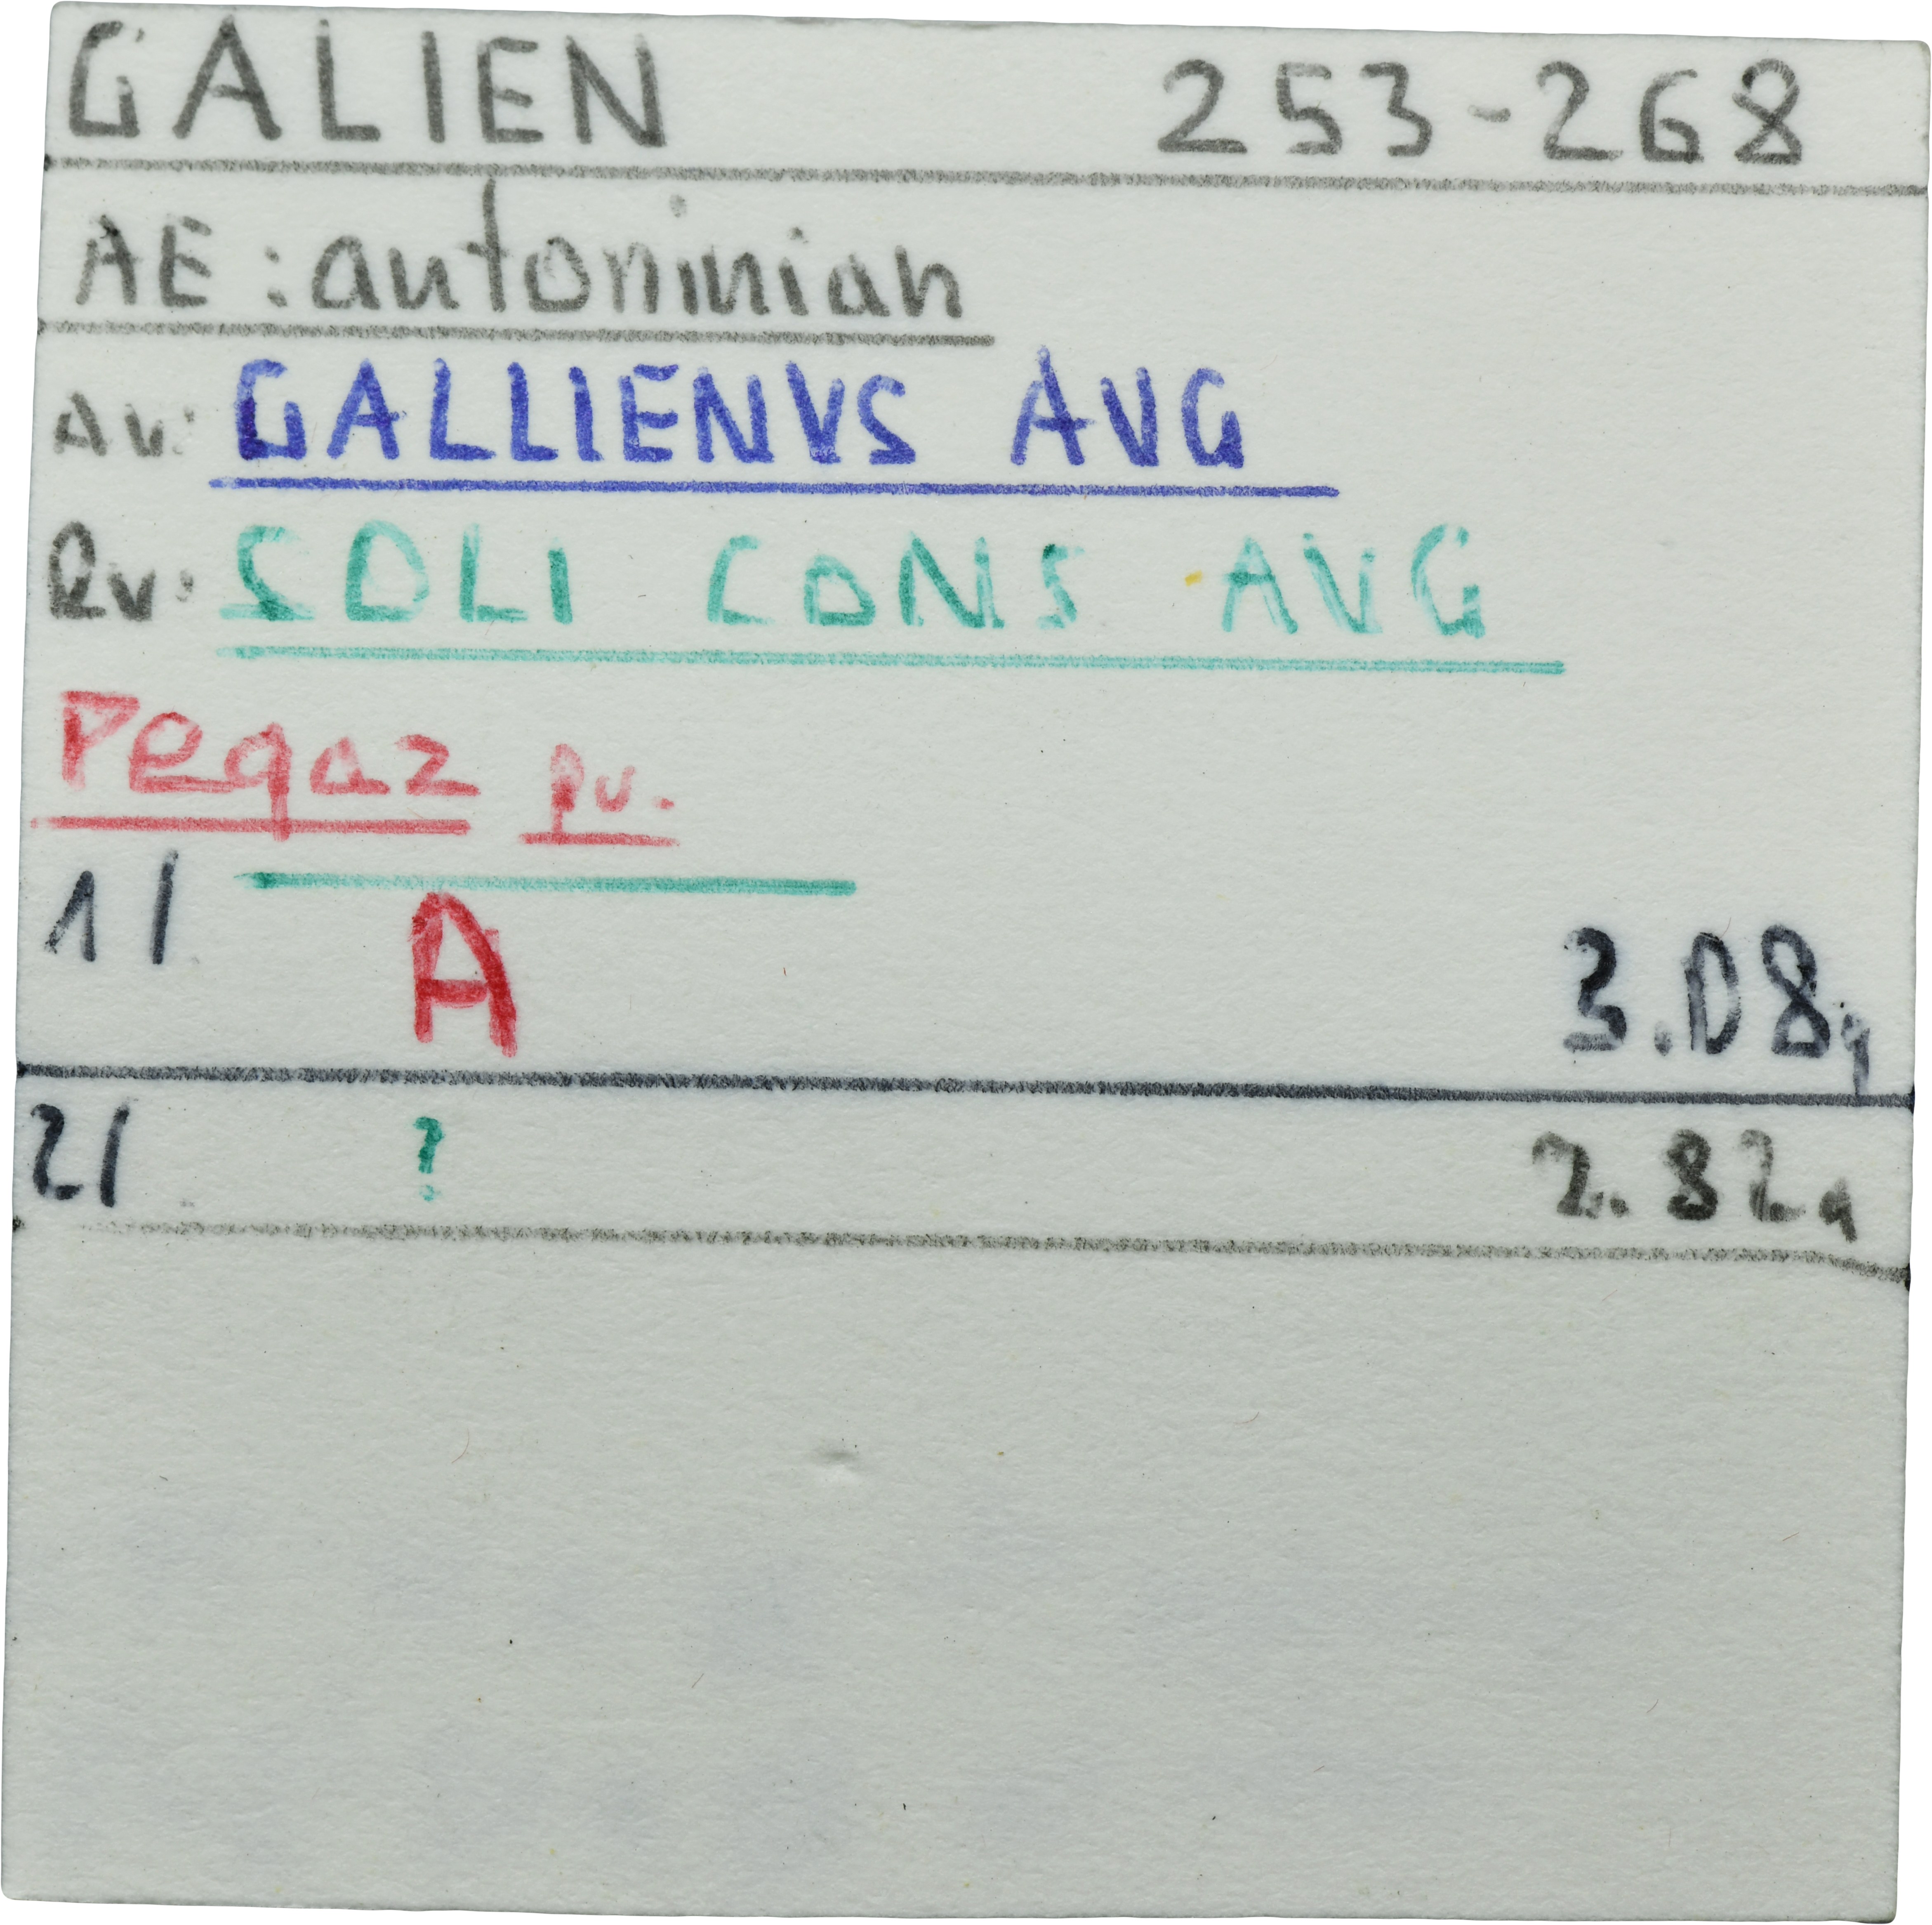 GALIEN 253-268
AE: antoninian
Av: GALLIENVS AVG
Rv: SOLI CONS AVG
Pegaz pv.
1/ A 3.08g
2/ ? 2.82g